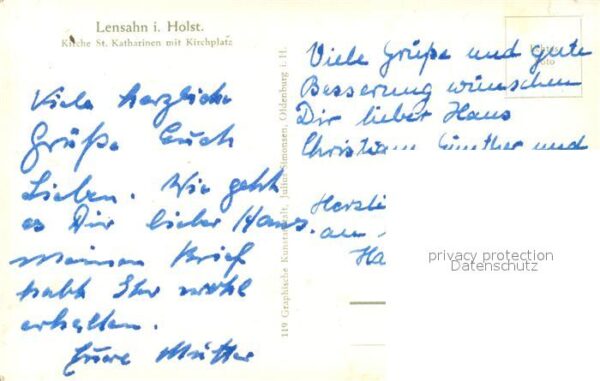 Lensahn i. Holst.
Kirche St. Katharinen mit Kirchplatz
Viele herzliche
Grüße Euch
Lieben. Wie geht
es Dir lieber Hans.
Meinen Brief
habt Ihr wohl
erhalten.
Eure Mutter
119 Graphische Kunstanstalt, Julius Simonsen, Oldenburg i. H.
Echtes
Foto
Viele Grüße und gute
Besserung wünschen
Dir lieber Hans
Günther und
an
Ha
privacy protection
Datenschutz